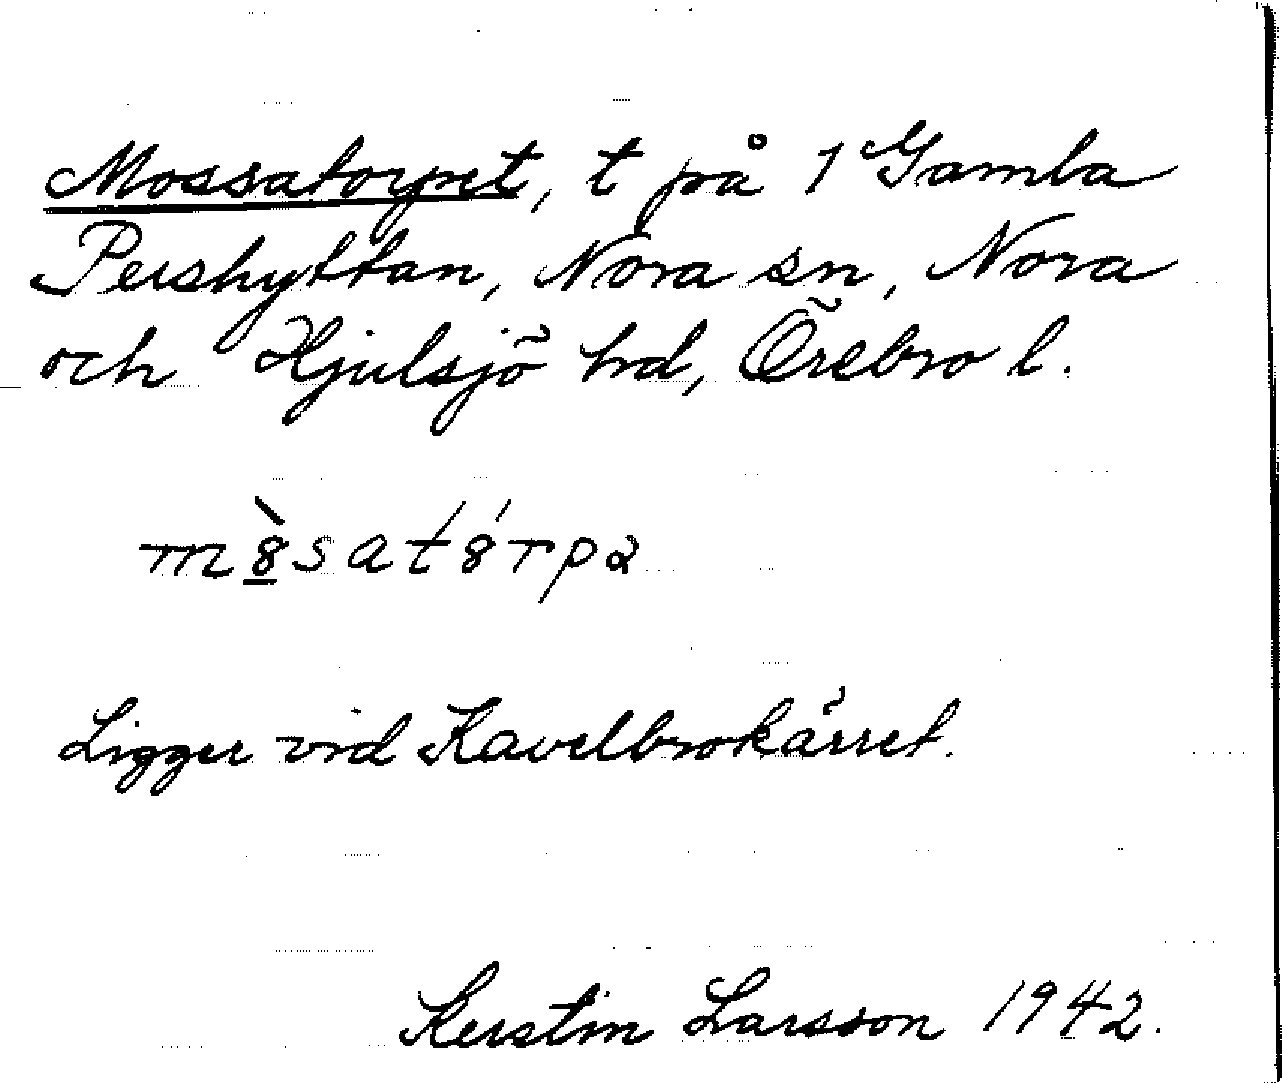 Mossatorpet, t på 1 Gamla
Pershyttan, Nora sn, Nora
och Hjulsjö hd, Örebro l.
Ligger vid Kavelbrokärret.
Kerstin Larsson 1942.